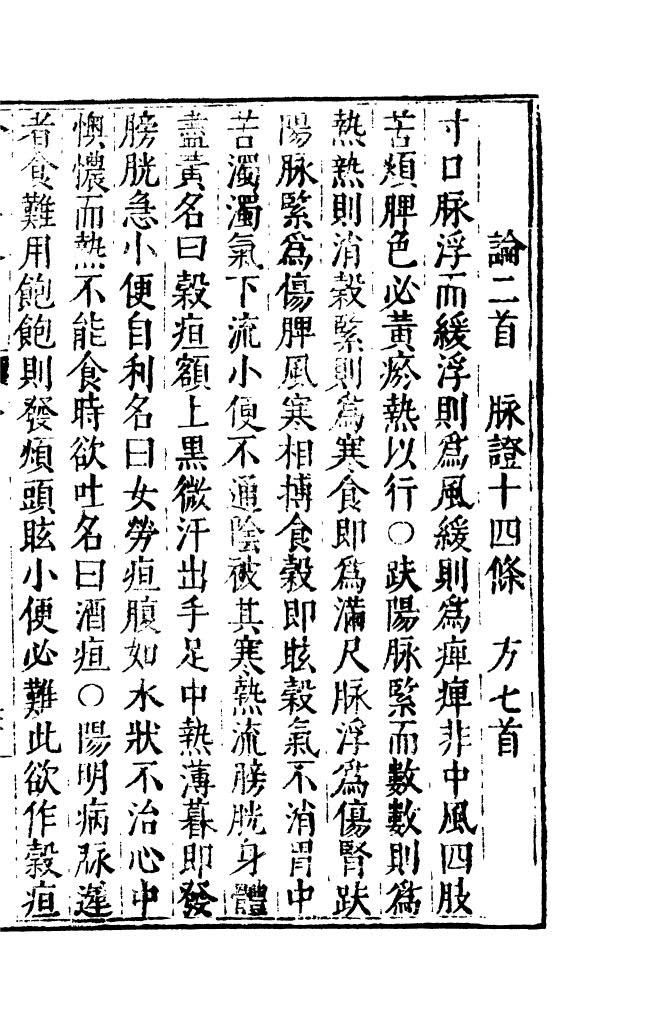 論二首　脉證十四條　方七首
寸口脉浮而緩浮則爲風緩則爲痺痺非中風四肢
苦煩脾色必黄瘀熱以行○趺陽脉緊而數數則爲
熱熱則消榖緊則爲寒食即爲滿尺脉浮爲傷腎趺
陽脉緊爲傷脾風寒相搏食榖即眩榖氣不消胃中
苦濁濁氣下流小便不通陰被其寒熱流膀胱身體
盡黄名曰榖疸額上黑微汗出手足中熱薄暮即發
膀胱急小便自利名曰女勞疸腹如水狀不治心中
懊憹而熱不能食時欲吐名曰酒疸○陽明病脉遲
者食難用飽飽則發煩頭眩小便必難此欲作榖疸